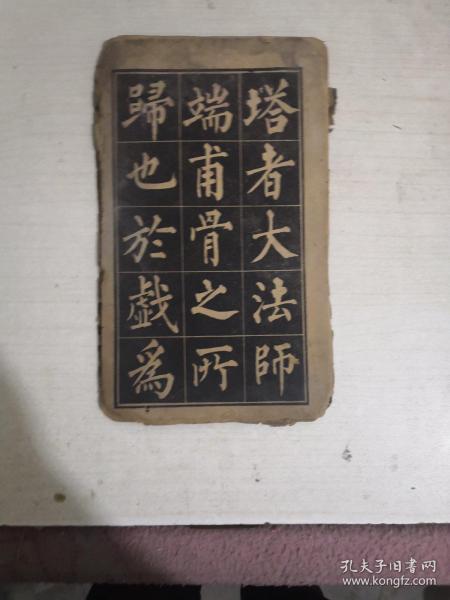 塔者大法師
端甫骨之所
歸也於戲為
孔夫子旧书网
www.kongfz.com